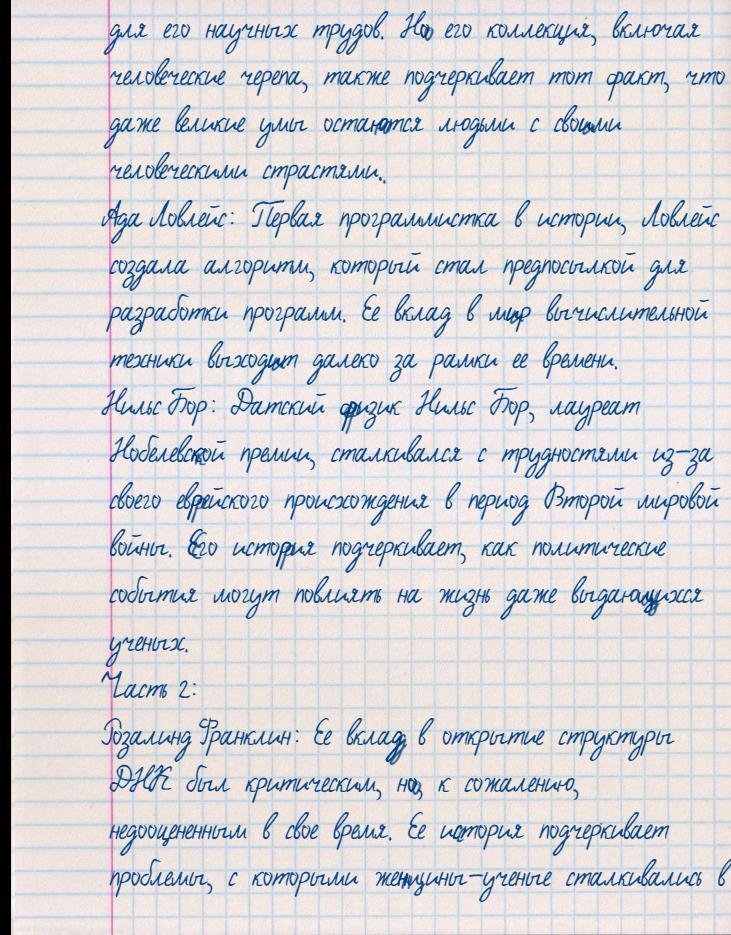 для его научных трудов. Но его коллекция, включая
человеческие черепа, также подчеркивает тот факт, что
даже великие умы остаются людьми с своими
человеческими страстями..
Ада Ловлейс: Первая программистка в истории, Ловлейс
создала алгоритм, который стал предпосылкой для
разработки программ. Ее вклад в мир вычислительной
техники выходит далеко за рамки ее времени.
Нильс Бор: Датский физик Нильс Бор, лауреат
Нобелевской премии, сталкивался с трудностями из-за
своего еврейского происхождения в период Второй мировой
войны. Его история подчеркивает, как политические
события могут повлиять на жизнь даже выдающихся
ученых.
Часть 2:
Розалинд Франклин: Ее вклад в открытие структуры
ДНК был критическим, но, к сожалению,
недооцененным в свое время. Ее история подчеркивает
проблемы, с которыми женщины-ученые сталкивались в